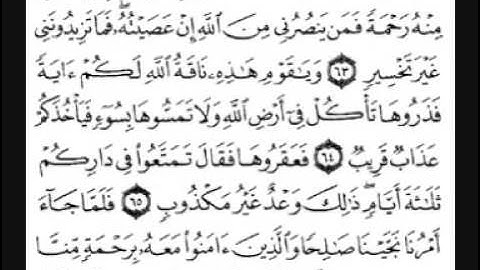 مِنْهُ رَحْمَةً فَمَن يَنصُرُنِي مِنَ ٱللَّهِ إِنْ عَصَيْتُهُۥ فَمَا تَزِيدُونَنِي
غَيْرَ تَخْسِيرٍ ٦٣ وَيَٰقَوْمِ هَٰذِهِۦ نَاقَةُ ٱللَّهِ لَكُمْ ءَايَةً
فَذَرُوهَا تَأْكُلْ فِىٓ أَرْضِ ٱللَّهِ وَلَا تَمَسُّوهَا بِسُوٓءٍ فَيَأْخُذَكُمْ
عَذَابٌ قَرِيبٌ ٦٤ فَعَقَرُوهَا فَقَالَ تَمَتَّعُوا۟ فِى دَارِكُمْ
ثَلَٰثَةَ أَيَّامٍ ۖ ذَٰلِكَ وَعْدٌ غَيْرُ مَكْذُوبٍ ٦٥ فَلَمَّا جَآءَ
أَمْرُنَا نَجَّيْنَا صَٰلِحًا وَٱلَّذِينَ ءَامَنُوا۟ مَعَهُۥ بِرَحْمَةٍ مِّنَّا